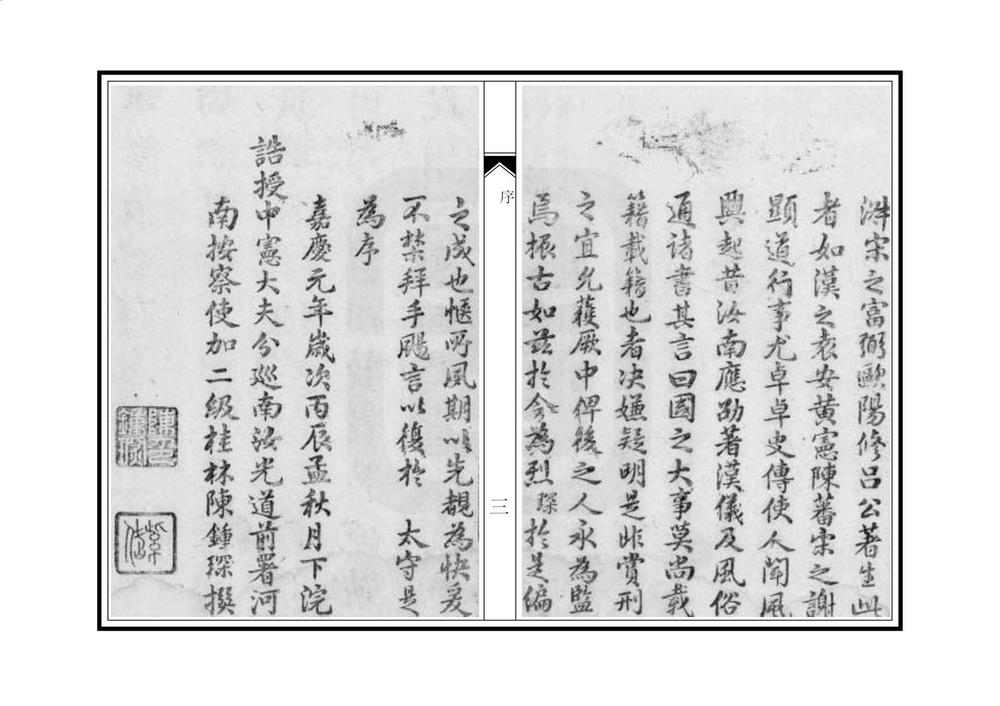 洴宋之富弼歐陽修呂公著生此
者如漢之袁安黃憲陳蕃宋之謝
顯道行事尤卓卓史傳使人聞風
興起昔汝南應劭著漢儀及風俗
通諸書其言曰國之大事莫尚載
籍載籍也者決嫌疑明是非賞刑
之宜允獲厥中俾後之人永為監
焉振古如茲於今為烈琛於是編
序
三
之成也愜所風期以先覩為快爰
不禁拜手颺言以復於 太守是
為序
嘉慶元年歲次丙辰孟秋月下浣
誥授中憲大夫分巡南汝光道前署河
南按察使加二級桂林陳鍾琛撰